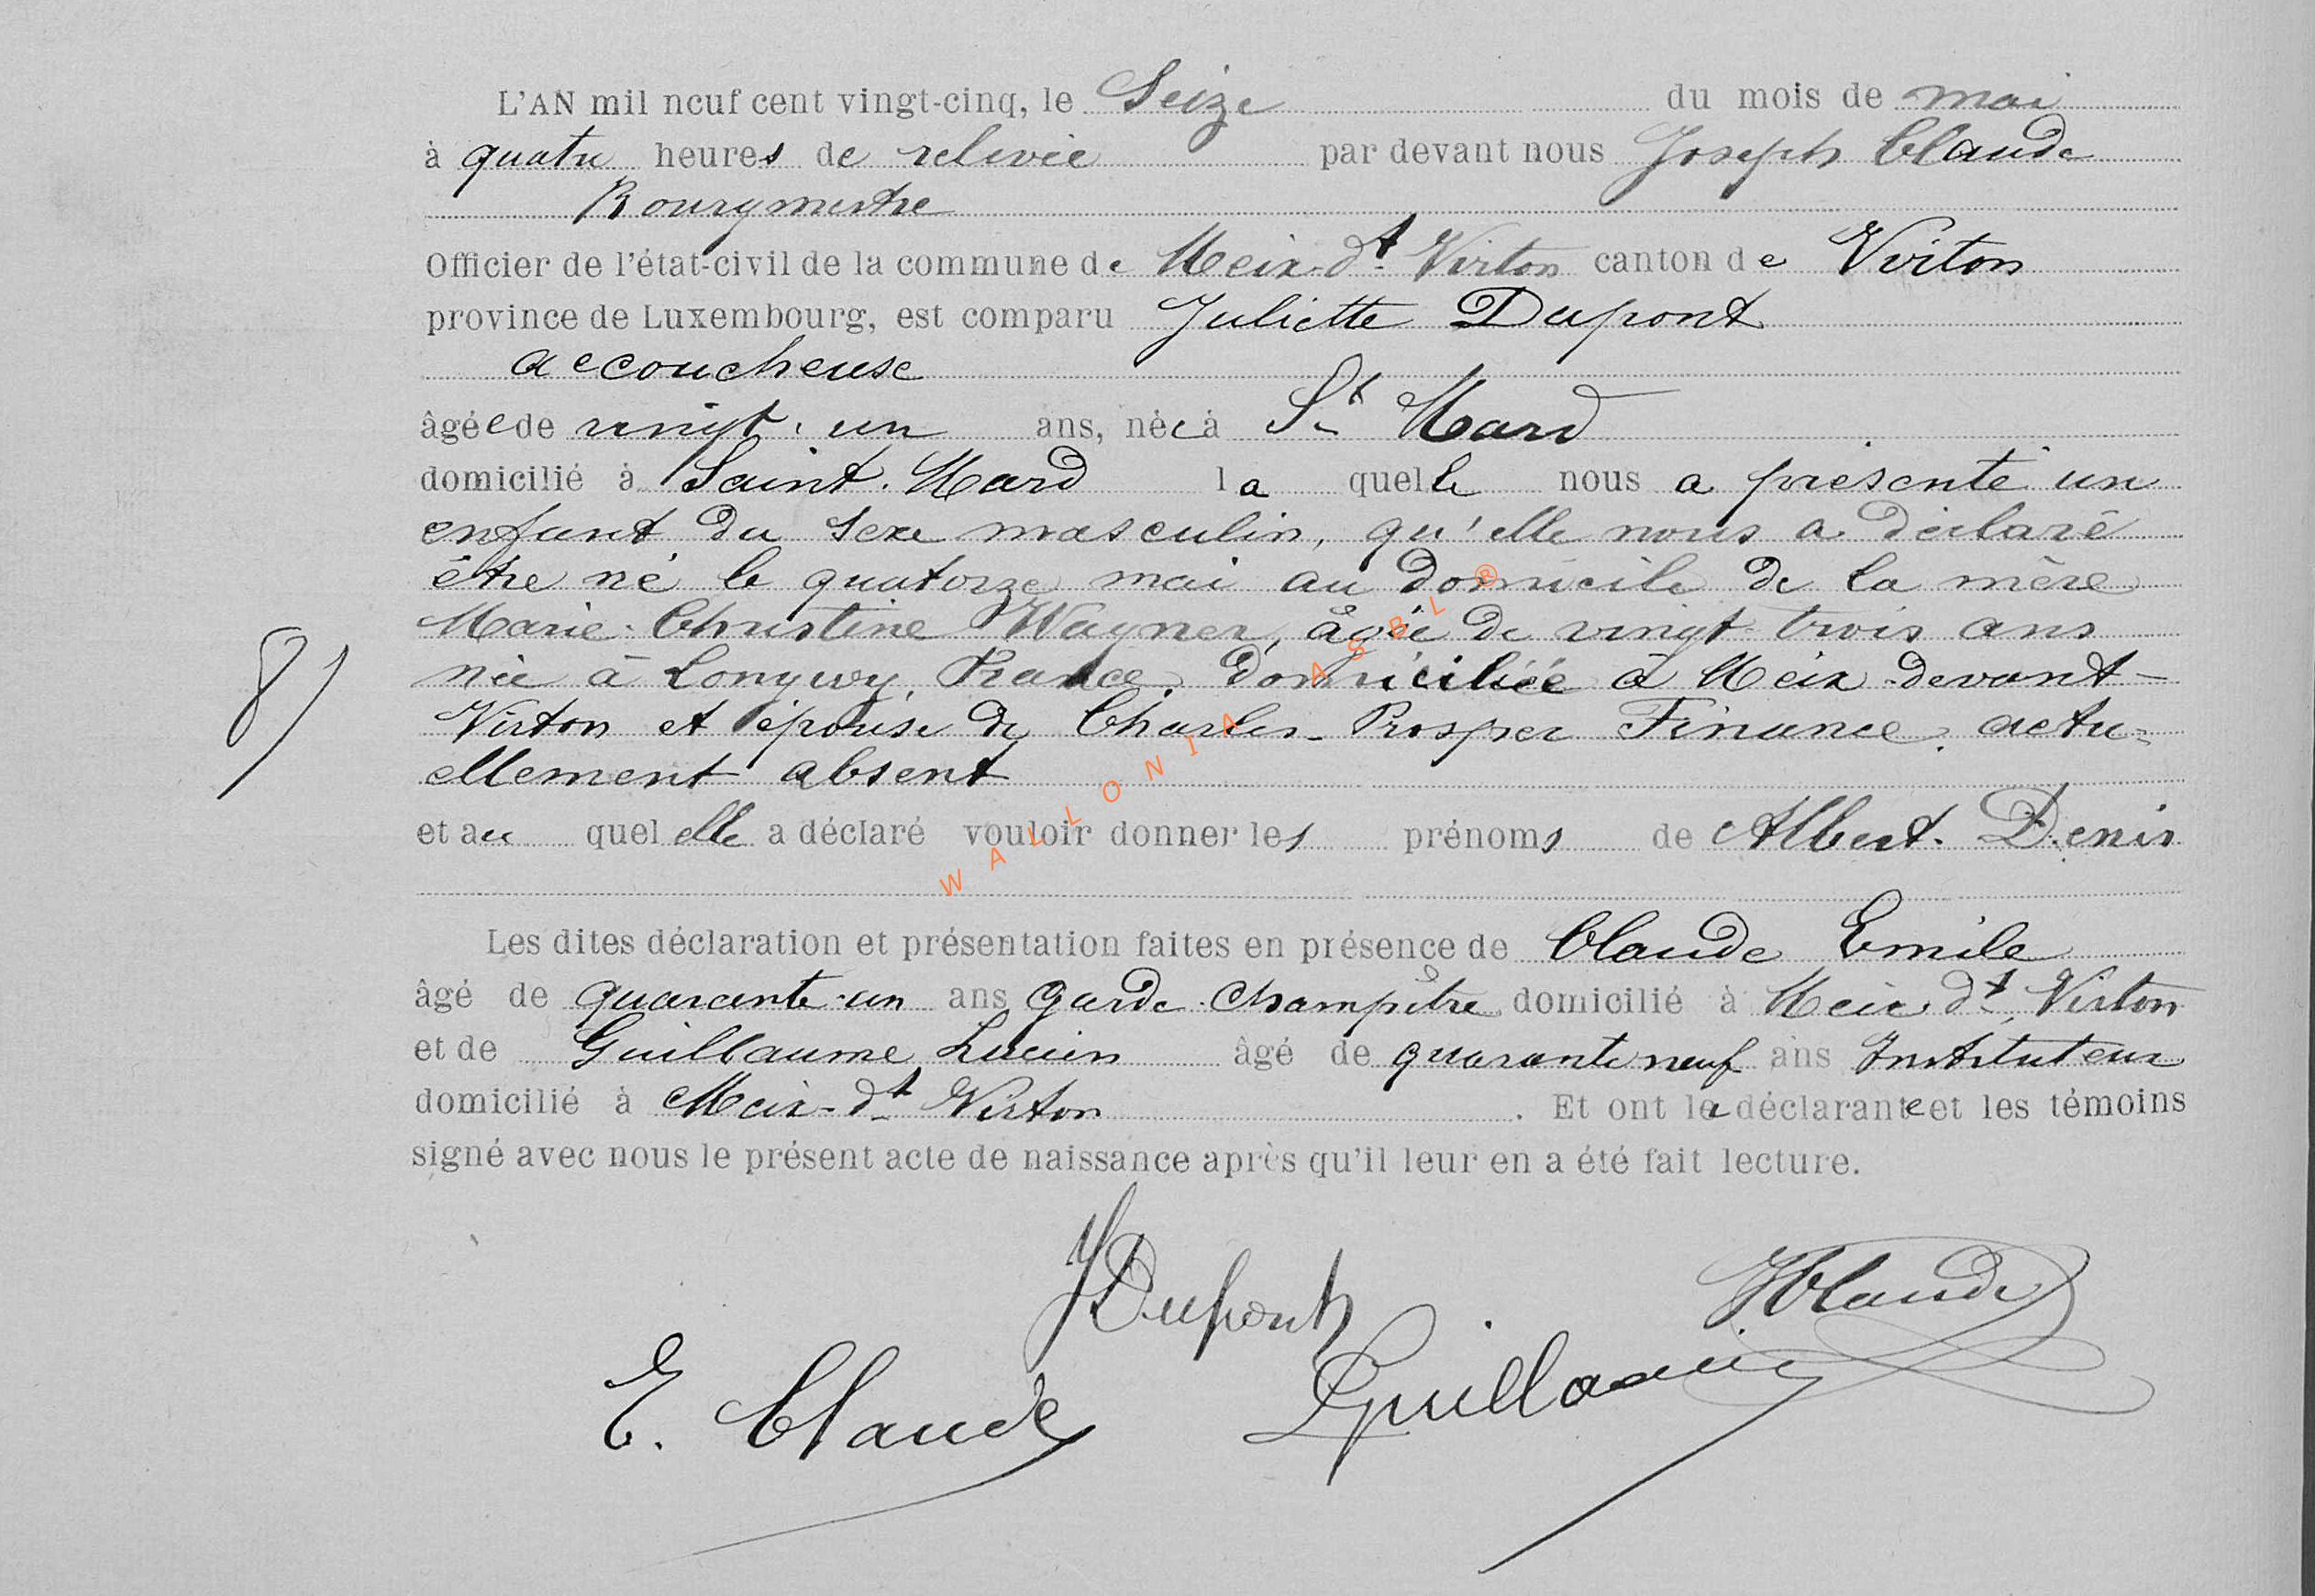 L'AN mil neuf cent vingt-cinq, le Seize du mois de mai
à quatre heures de relevée par devant nous Joseph Claude
Bourgmestre
Officier de l'état-civil de la commune de Meix-dt Virton canton de Virton
province de Luxembourg, est comparu Juliette Dupont
accoucheuse
âgée de vingt-un ans, née à St Mard
domicilié à Saint-Mard la quelle nous a présenté un
enfant du sexe masculin, qu'elle nous a déclaré
être né le quatorze mai au domicile de la mère
Marie-Christine Wagner, âgée de vingt-trois ans
née à Longwy, France, domiciliée à Meix-devant-
Virton et épouse de Charles-Prosper Finance, actu-
8/
ellement absent
et au quel elle a déclaré vouloir donner les prénoms de Albert-Denis
WALLONIA ASBL ®
Les dites déclaration et présentation faites en présence de Claude Emile
âgé de quarante-un ans garde-champêtre domicilié à Meix-dt Virton
et de Guillaume Lucien âgé de quarante neuf ans Instituteur
domicilié à Meix-dt Virton. Et ont la déclarante et les témoins
signé avec nous le présent acte de naissance après qu'il leur en a été fait lecture.
JDupont JClaude
E. Claude LGuillaume